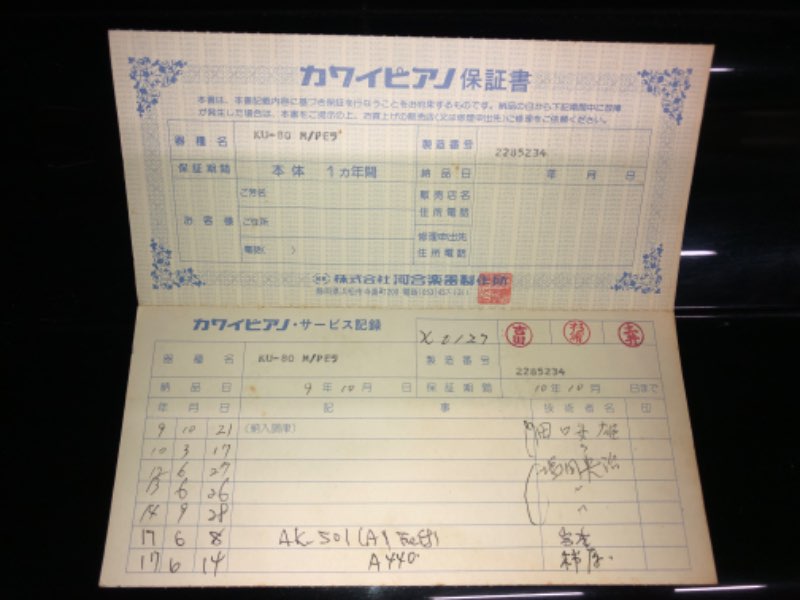 カワイピアノ 保証書
本書は、本書記載内容に基づき保証を行なうことをお約束するものです。納品の日から下記期間中に故障
が発生した場合は、本書をご提示の上、お買上げの販売店(又は修理申出先)に修理をご依頼ください。
器種名 KU-80 M/PEラ 製造番号 2285234
保証期間 本体 1カ年間 納品日 年 月 日
お客様 ご芳名 販売店名
ご住所 住所電話
修理申出先
電話( ) 住所電話
株式会社 河合楽器製作所
カワイピアノ・サービス記録
器種名 KU-80 M/PEラ 製造番号 2285234
納品日 9年10月 日 保証期間 10年10月 日まで
年 月 日 記 事 技術者名 印
9 10 21 (納入調律)
10 3 17
12 6 27
13 6 26
14 9 28
17 6 8 AK-501
17 6 14 A440